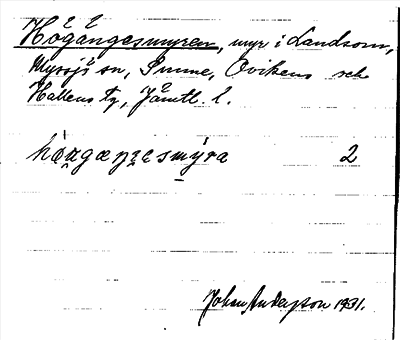 Högångesmyren, myr i Landsom,
Myssjö sn, Sunne, Ovikens och
Hallens tg, Jämtl. l.
hǫugaŋesmýra 2
Johan Anderson 1931.